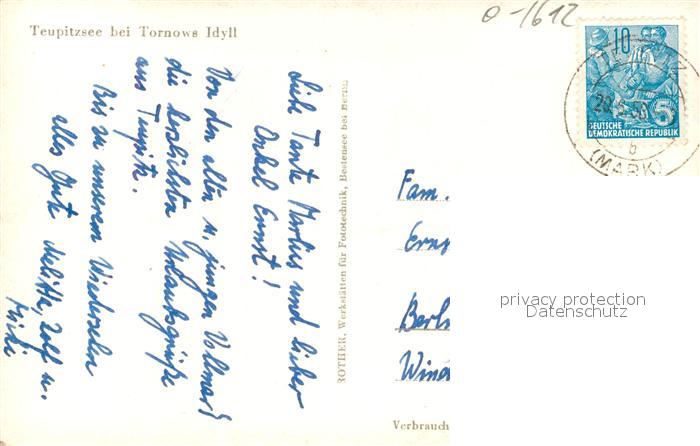 Teupitzsee bei Tornows Idyll
0-1612
10
5
DEUTSCHE
DEMOKRATISCHE REPUBLIK
b
(MARK)
Liebe Tante Martus und lieber
Onkel Ernst!
Von den alten u. jungen Vollmars
die herzlichsten Urlaubsgrüße
aus Teupitz.
Bis zu unserem Wiedersehn
alles Gute Melitta, Rolf u.
ROTHER, Werkstätten für Fototechnik, Bestensee bei Berlin
Fam.
Erns
Berli
Wins
privacy protection
Datenschutz
Verbrauch